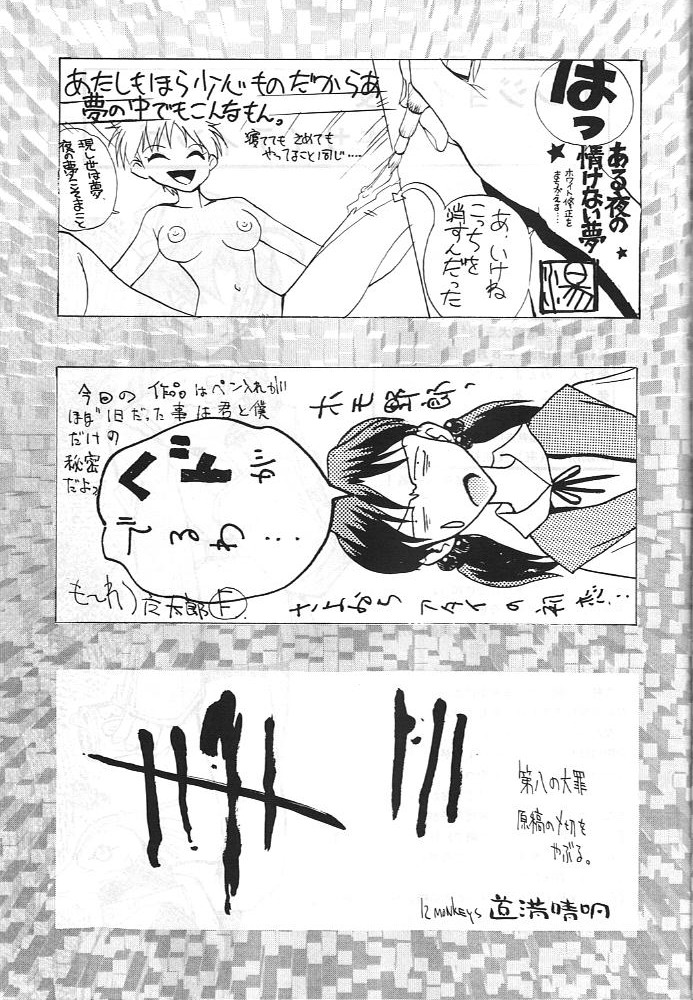 はっ
ある夜の
情けない夢
ホワイト修正を
まちがえる…
陽
あ、いけね
こっちを
消すんだった
あたしもほら少心ものだからあ
夢の中でもこんなもん。
寝てても さめても
やってること同じ….
現し世は夢、
夜の夢こそまこと
今回の作品はペン入れが
ほぼ1日だった事は君と僕
だけの
秘密
だよ。
ヘドが
でるわ…
さよおなら アタイの初恋…
12 MONKEYS 道満晴明
第八の大罪
原稿の〆切を
やぶる。